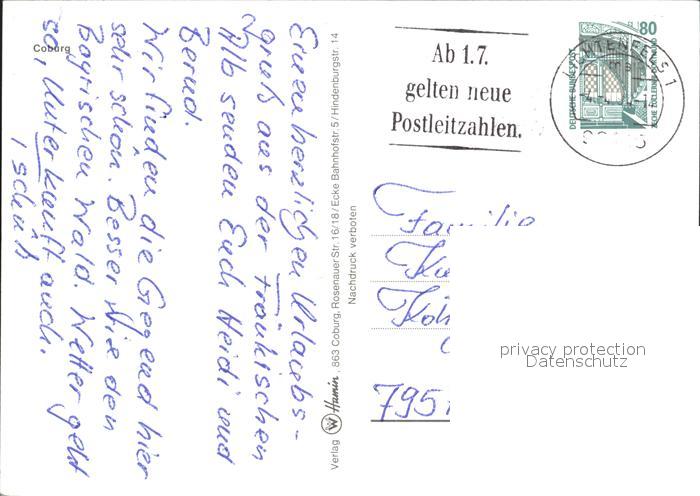 Coburg
Einen herzlichen Urlaubs-
gruß aus der Fränkischen
Alb senden Euch Heidi und
Bernd.
Wir finden die Gegend hier
sehr schön. Besser wie den
Bayrischen Wald. Wetter geht
so, Unterkunft auch.
Tschüß
Verlag Hamin, 863 Coburg, Rosenauer Str. 16/18 / Ecke Bahnhofstr. 5 / Hindenburgstr. 14
Nachdruck verboten
Ab 1.7.
gelten neue
Postleitzahlen.
80
DEUTSCHE BUNDESPOST
LICHTENFELS 1
Familie
795
privacy protection
Datenschutz